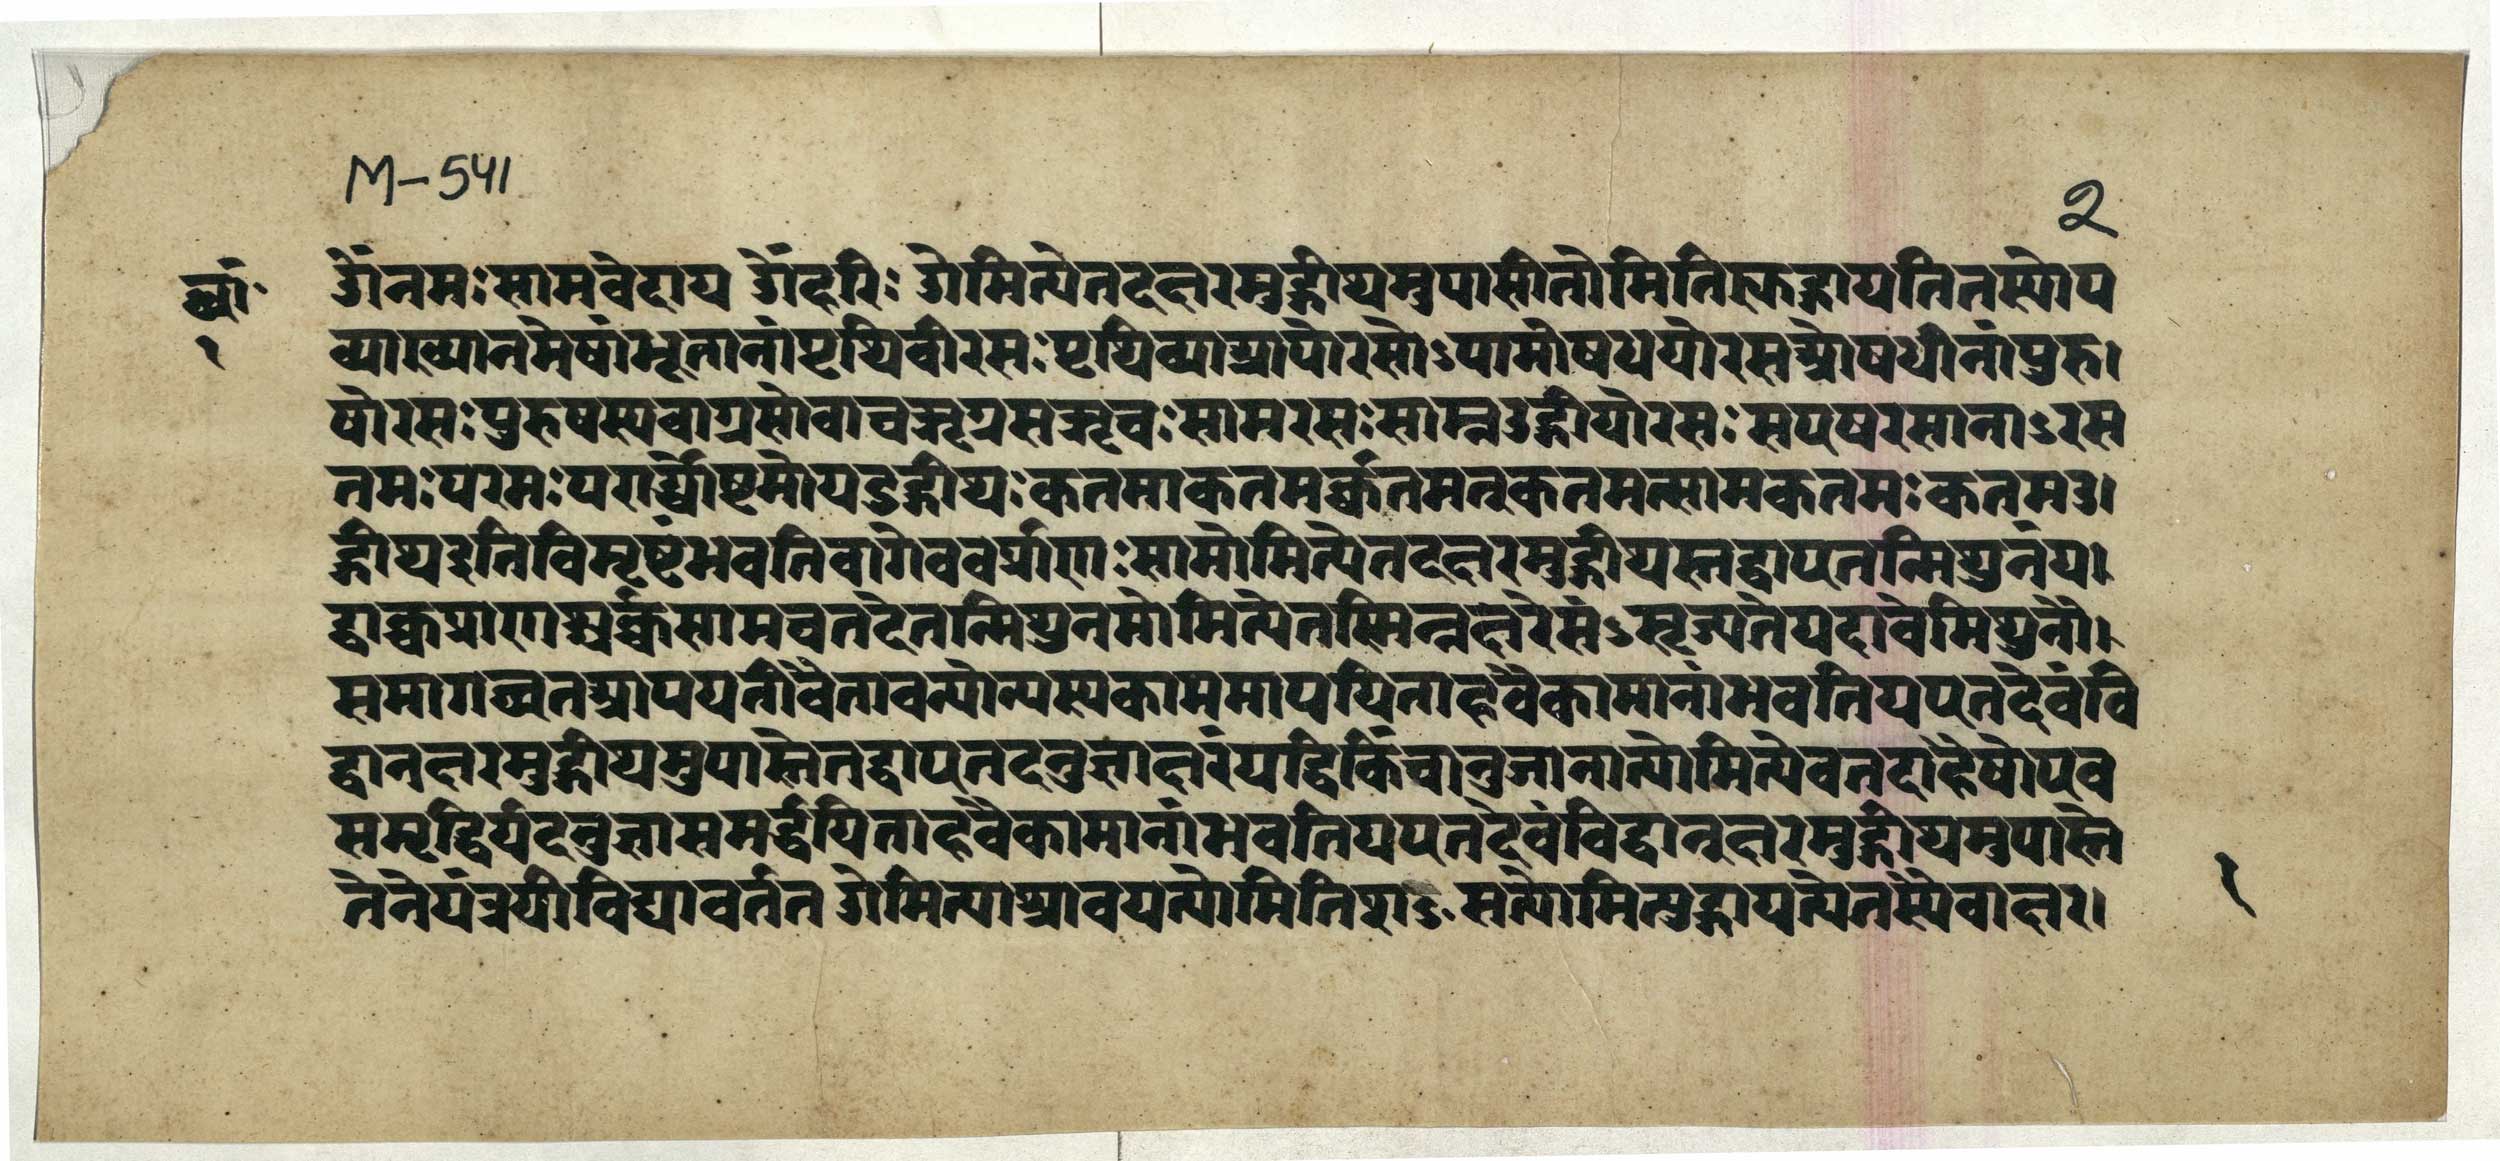 M-541
२
छां॰
१
ॐनमःसामवेदाय ॐहरिः ओमित्येतदक्षरमुद्गीथमुपासीतोमितिह्युद्गायतितस्योप
व्याख्यानमेषांभूतानांपृथिवीरसःपृथिव्याआपोरसोऽपामोषधयोरसओषधीनांपुरु।
षोरसःपुरुषस्यवाग्रसोवाचऋग्रसऋचःसामरसःसाम्नउद्गीथोरसःसएषरसानाऽरस
तमःपरमःपरार्ध्योष्टमोयउद्गीथःकतमाकतमर्क्कतमत्कतमत्सामकतमःकतमउ।
द्गीथइतिविमृष्टंभवतिवागेवर्क्प्राणःसामोमित्येतदक्षरमुद्गीथस्तद्वाएतन्मिथुनंय।
द्वाक्चप्राणश्चर्क्चसामचतदेतन्मिथुनमोमित्येतस्मिन्नक्षरेसंऽसृज्यतेयदावैमिथुनौ।
समागछतआपयतोवैतावन्योन्यस्यकाममापयिताहवैकामानांभवतियएतदेवंवि
द्वानक्षरमुद्गीथमुपास्तेतद्वाएतदनुज्ञाक्षरंयद्धिकिंचानुजानात्योमित्येवतदाहैषोएव
समृद्धिर्यदनुज्ञासमर्द्धयिताहवैकामानांभवतियएतदेवंविद्वानक्षरमुद्गीथमुपास्ते
तेनेयंत्रयीविद्यावर्तत ओमित्याश्रावयत्योमितिशाऽसत्योमित्युद्गायत्येतस्यैवाक्षर।
१